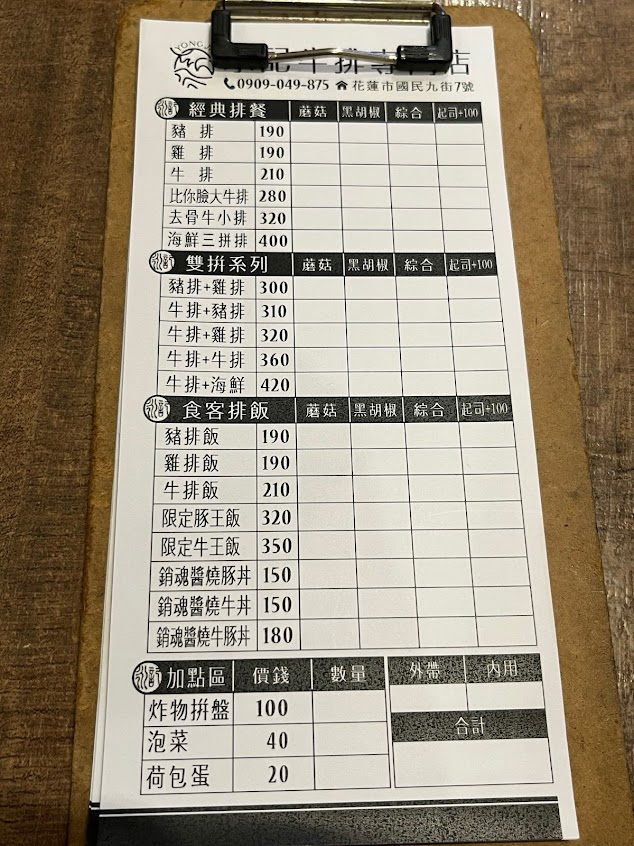 YONGJI
記牛排專門店
0909-049-875 花蓮市國民九街7號
永記 經典排餐 蘑菇 黑胡椒 綜合 起司+100
豬 排 190
雞 排 190
牛 排 210
比你臉大牛排 280
去骨牛小排 320
海鮮三拼排 400
永記 雙拚系列 蘑菇 黑胡椒 綜合 起司+100
豬排+雞排 300
牛排+豬排 310
牛排+雞排 320
牛排+牛排 360
牛排+海鮮 420
永記 食客排飯 蘑菇 黑胡椒 綜合 起司+100
豬排飯 190
雞排飯 190
牛排飯 210
限定豚王飯 320
限定牛王飯 350
銷魂醬燒豚丼 150
銷魂醬燒牛丼 150
銷魂醬燒牛豚丼 180
永記 加點區 價錢 數量 外帶 內用
炸物拚盤 100
合計
泡菜 40
荷包蛋 20